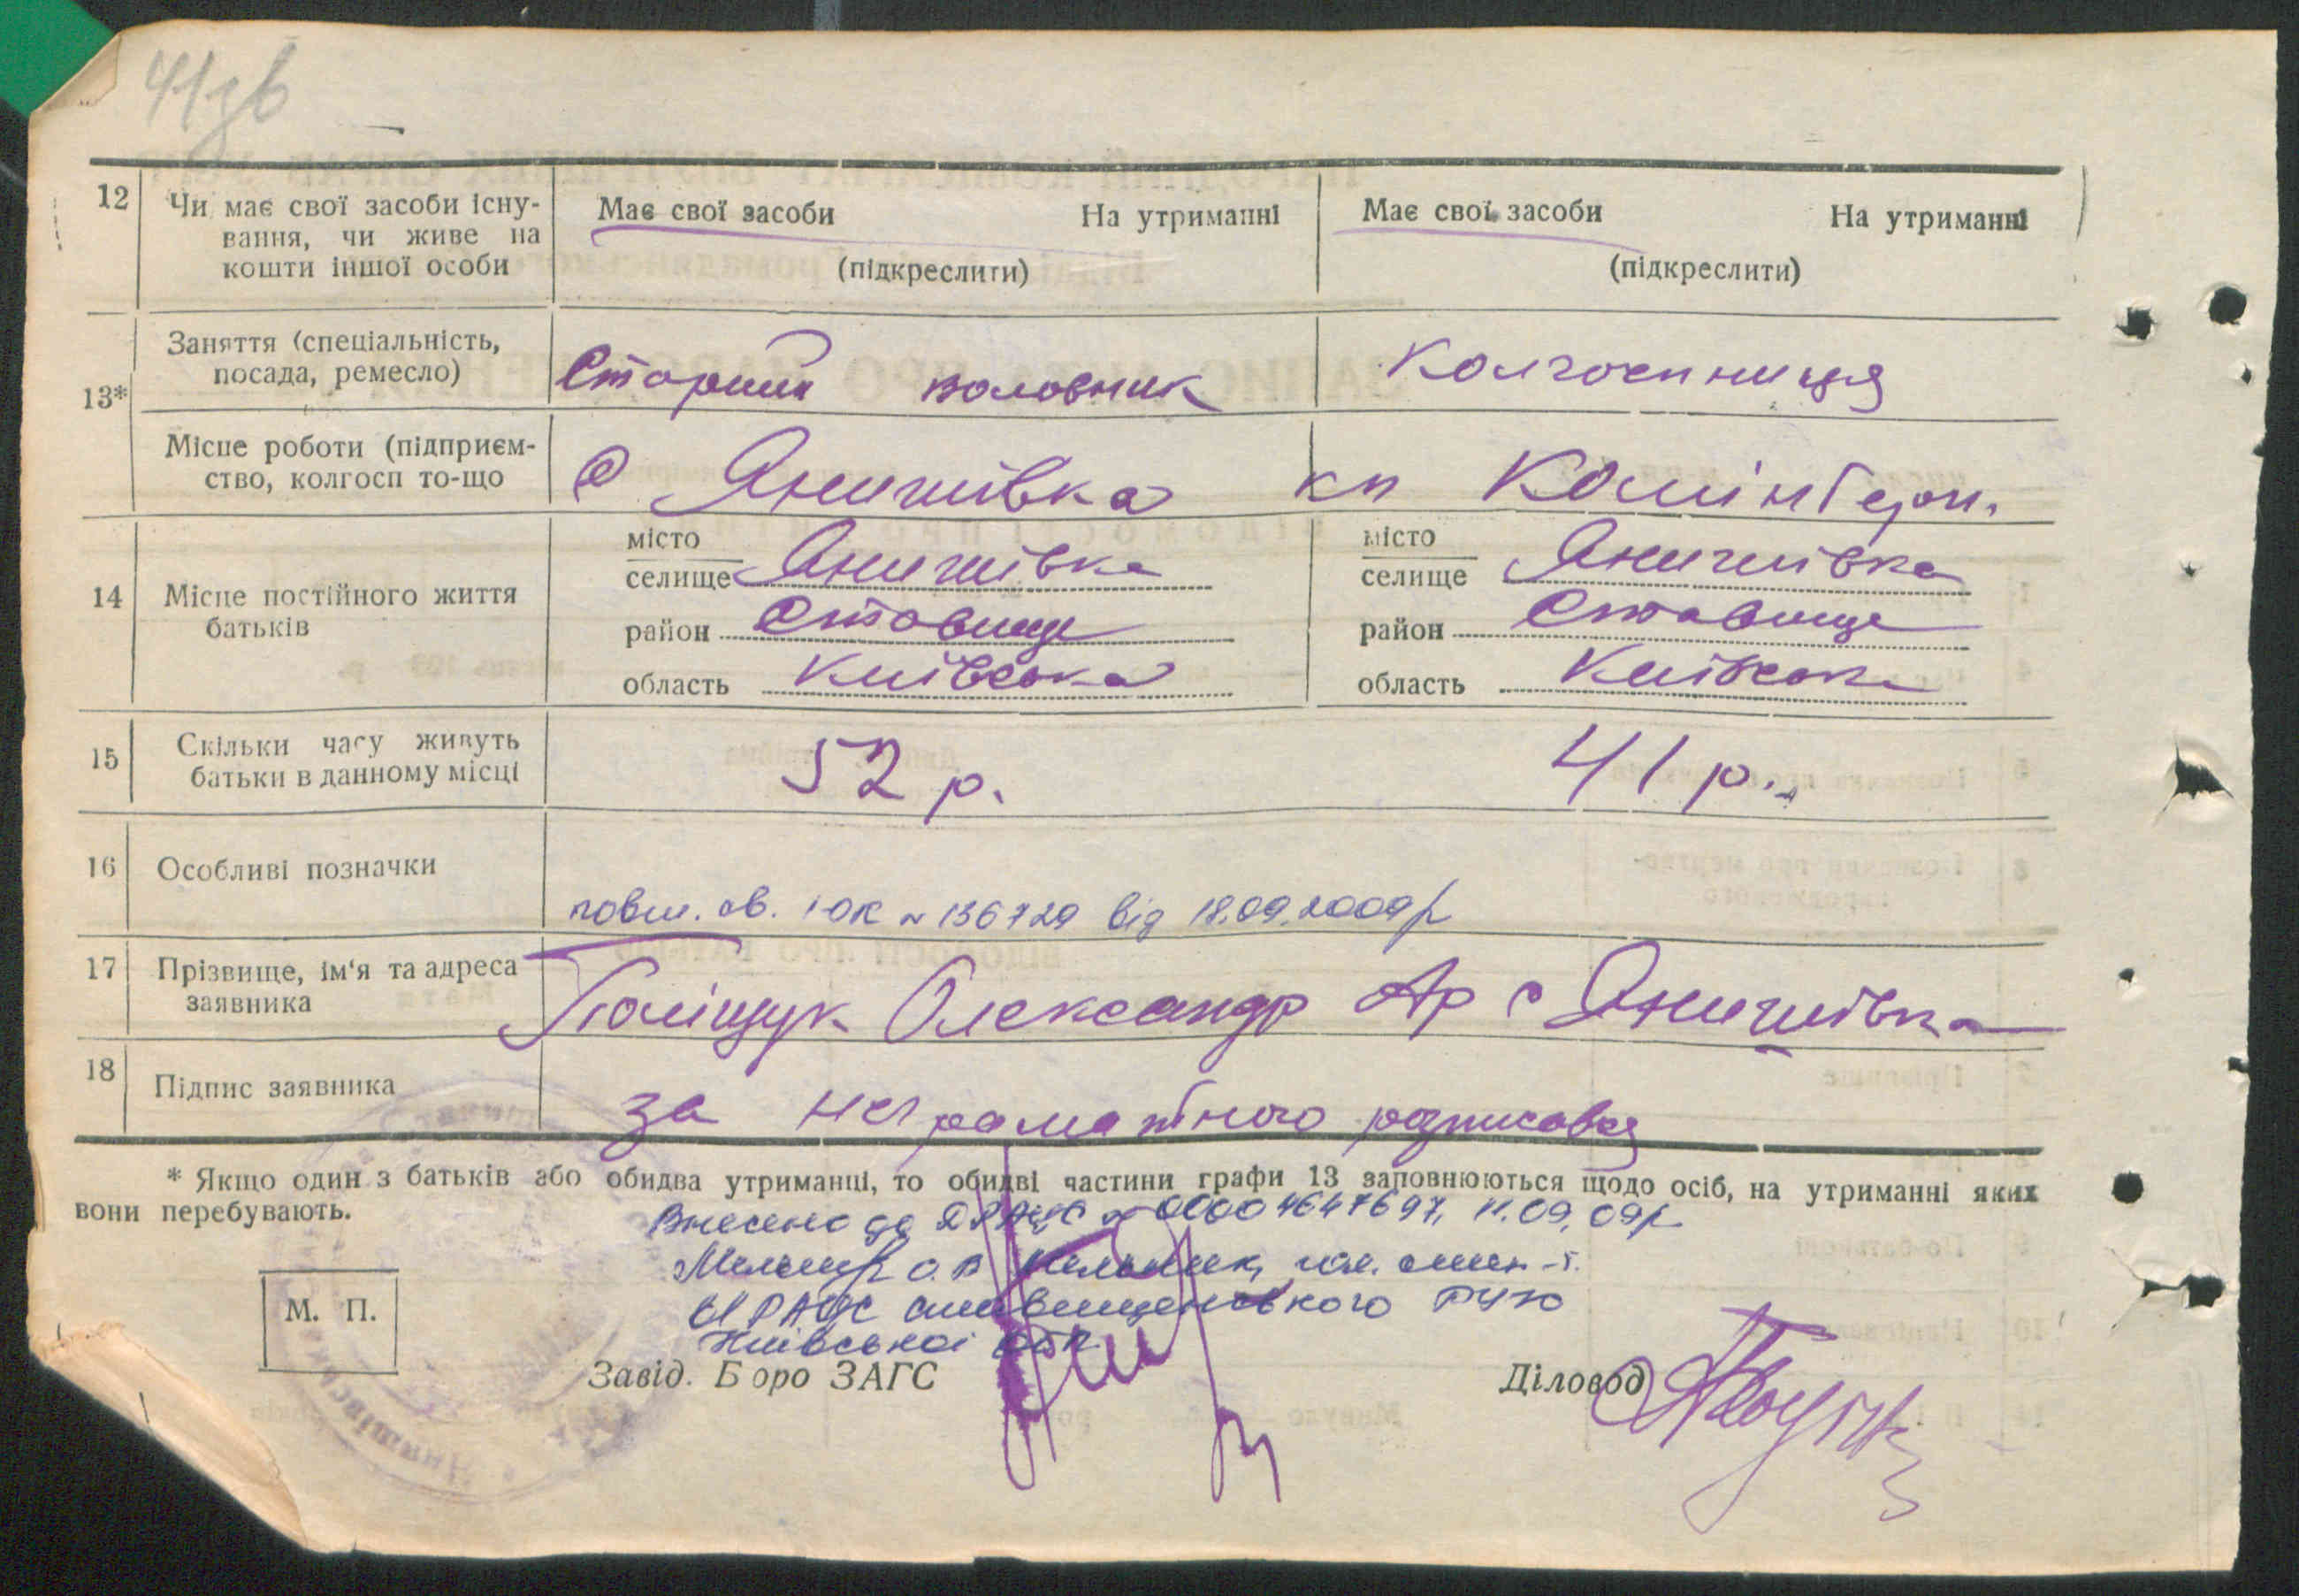 41зв
12 Чи має свої засоби існу- Має свої засоби На утриманні Має свої засоби На утриманні
вання, чи живе на
кошти іншої особи (підкреслити) (підкреслити)
13* Заняття (спеціальність, Старший воловник Колгоспниця
посада, ремесло)
Місце роботи (підприєм- с Янишівка кп Комінтерн.
ство, колгосп то-що
14 Місце постійного життя місто місто
батьків селище Янишівка селище Янишівка
район Ставище район Ставище
область Київська область Київська
15 Скільки часу живуть 52 р. 41 р.
батьки в данному місці
16 Особливі позначки
повт. св. 1-ОК № 136729 від 18.09.2009р
17 Прізвище, ім'я та адреса Поліщук Олександр Ар с Янишівка
заявника
18 Підпис заявника за неграмотного
* Якщо один з батьків або обидва утриманці, то обидві частини графи 13 заповнюються щодо осіб, на утриманні яких
вони перебувають.
Внесено до ДРАЦС № 00004647697, 11.09.09р
О.В
ДРАЦС Ставищенського РУЮ
Київської обл
М. П.
Завід. Бюро ЗАГС Діловод